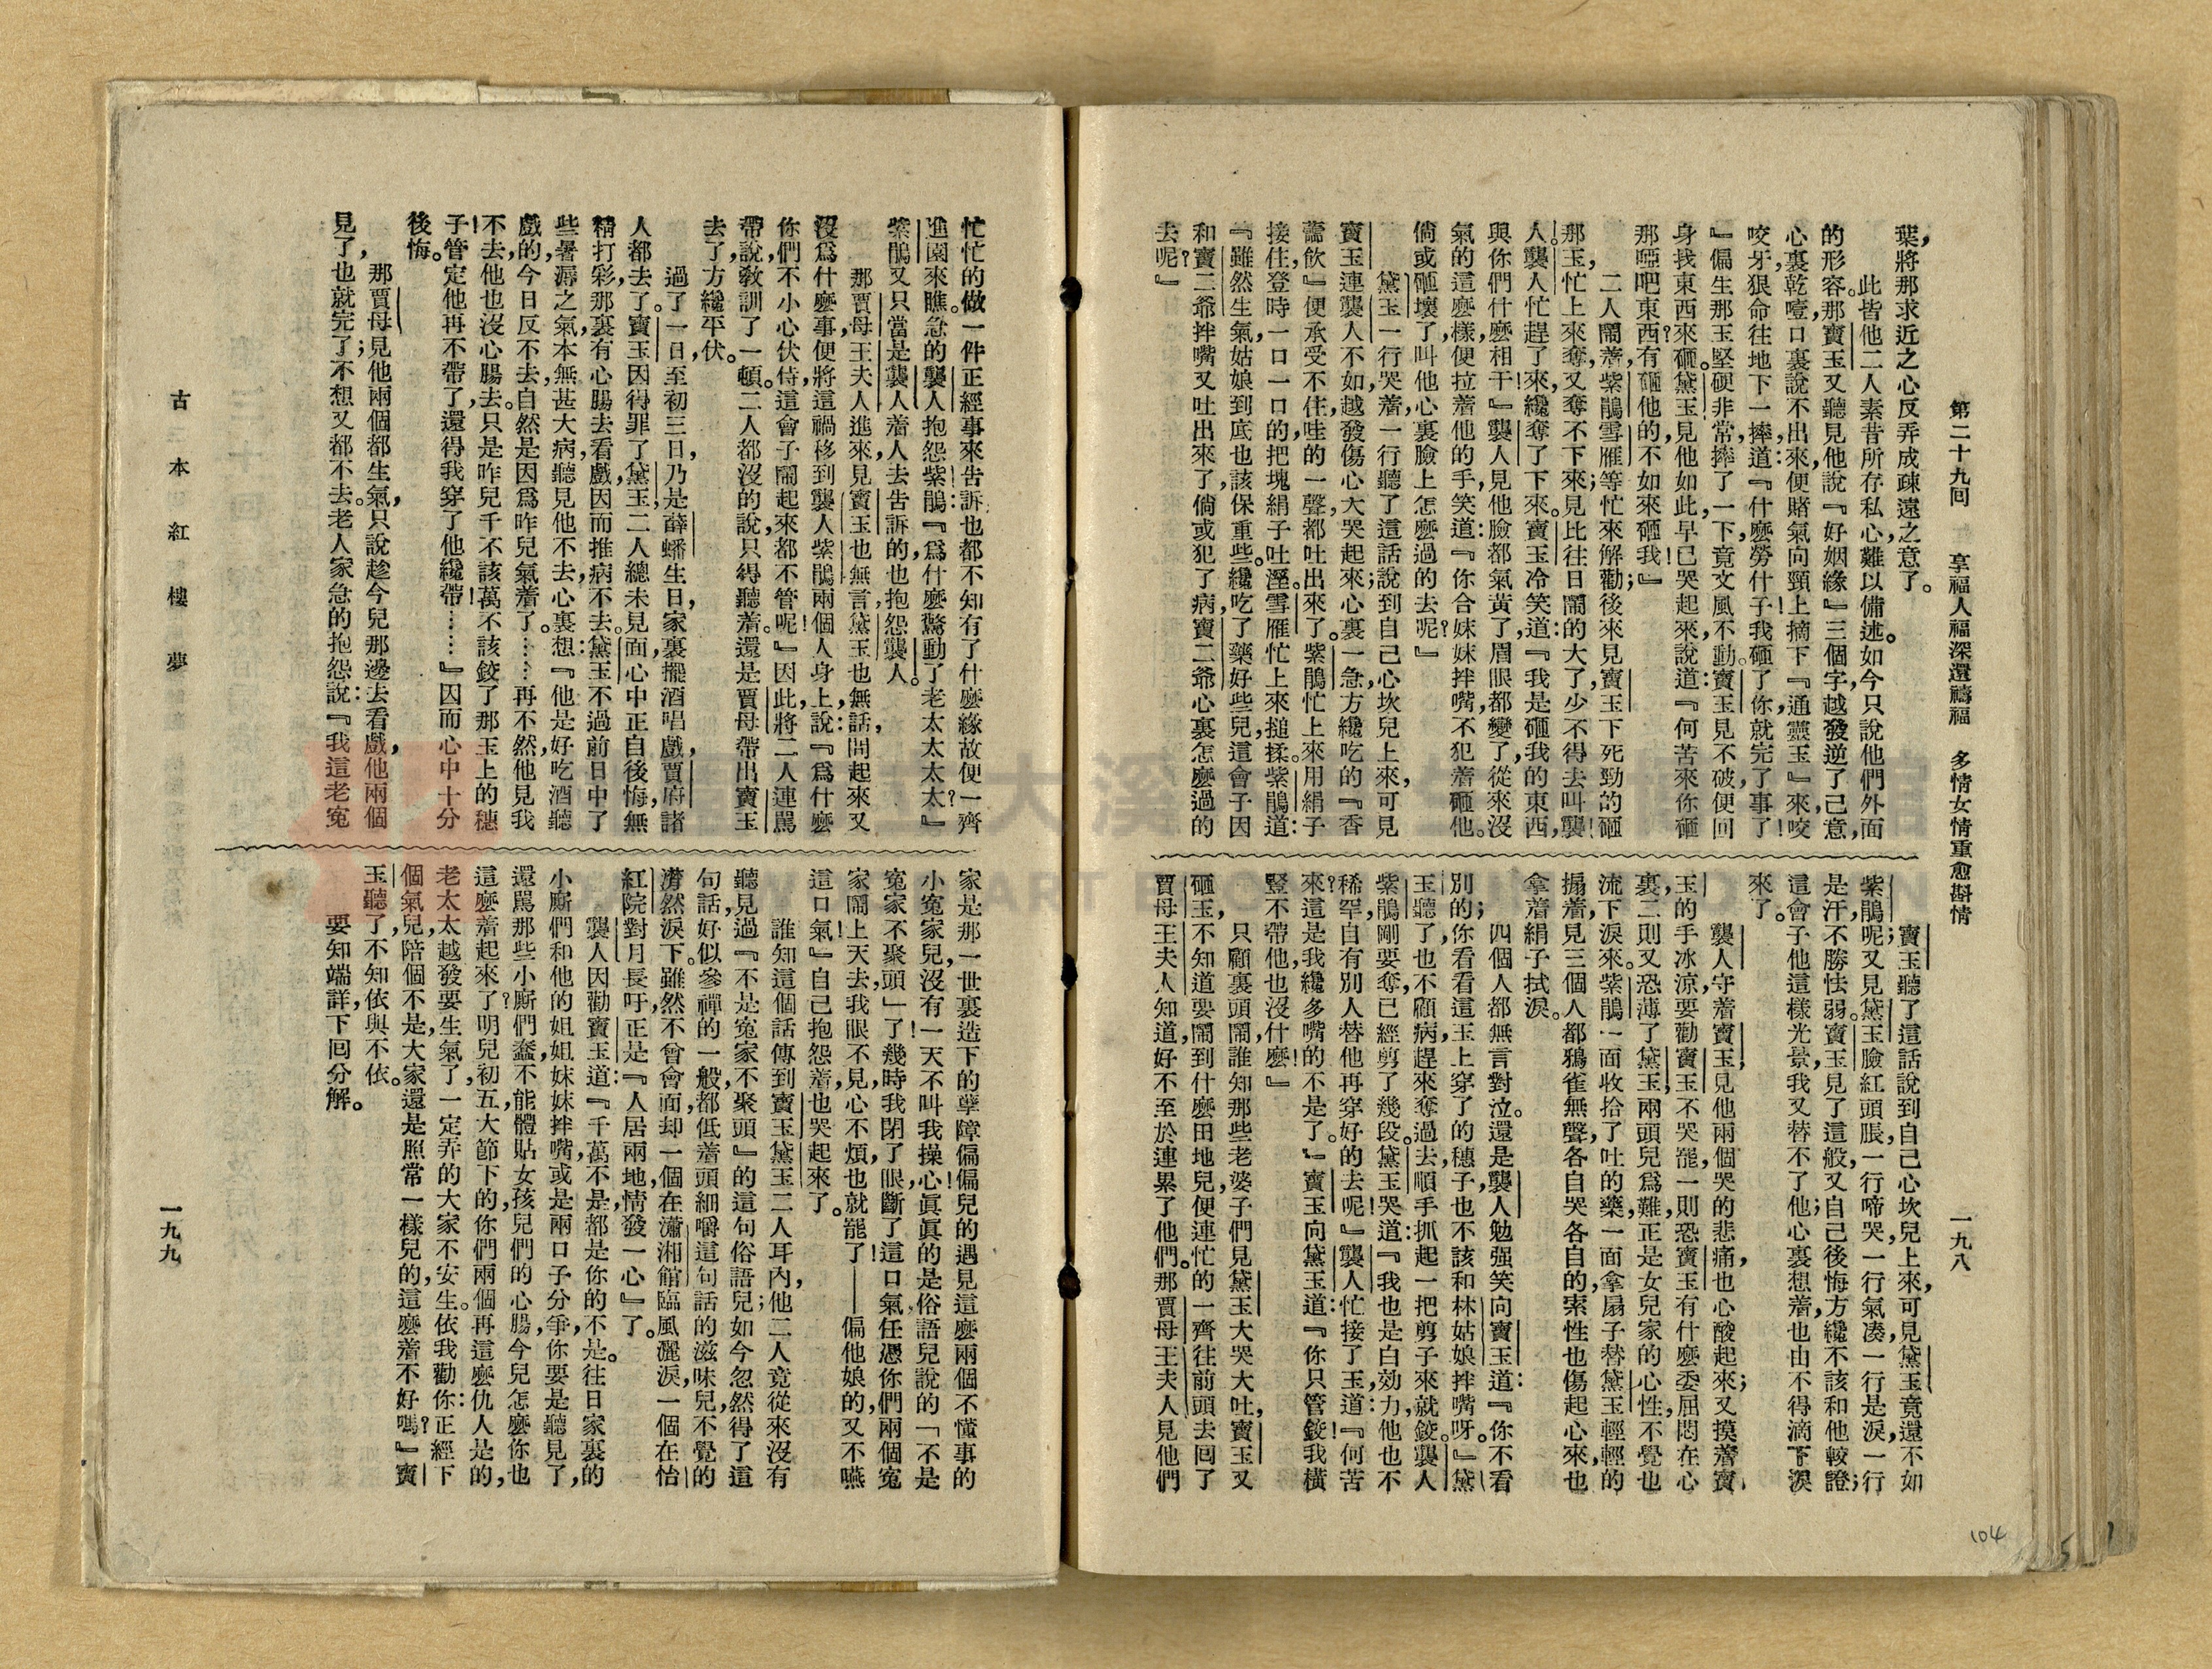 第二十九回　享福人福深還禱福　多情女情重愈斟情
一九八
葉,將那求近之心反弄成疎遠之意了。
此皆他二人素昔所存私心,難以備述。如今只說他們外面
的形容。那寶玉又聽見他說『好姻緣』三個字,越發逆了己意,
心裏乾噎,口裏說不出來,便賭氣向頸上摘下『通靈玉』來,咬
咬牙,狠命往地下一摔,道:『什麼勞什子!我砸了你,就完了事了!
』偏生那玉堅硬非常,摔了一下,竟文風不動。寶玉見不破,便回
身找東西來砸。黛玉見他如此,早已哭起來,說道:『何苦來你砸
那啞吧東西?有砸他的,不如來砸我!』
二人鬧着,紫鵑雪雁等忙來解勸;後來見寶玉下死勁的砸
那玉,忙上來奪,又奪不下來;見比往日鬧的大了,少不得去叫襲
人。襲人忙趕了來,纔奪了下來。寶玉冷笑道:『我是砸我的東西,
與你們什麼相干!』襲人見他臉都氣黃了,眉眼都變了,從來沒
氣的這麼樣,便拉着他的手,笑道:『你合妹妹拌嘴,不犯着砸他。
倘或砸壞了,叫他心裏臉上怎麼過的去呢?』
黛玉一行哭着,一行聽了這話說到自己心坎兒上來,可見
寶玉連襲人不如,越發傷心大哭起來;心裏一急,方纔吃的『香
薷飲』便承受不住,哇的一聲,都吐出來了。紫鵑忙上來用絹子
接住,登時一口一口的,把塊絹子吐溼。雪雁忙上來搥揉。紫鵑道:
『雖然生氣,姑娘到底也該保重些。纔吃了藥好些兒,這會子因
和寶二爺拌嘴,又吐出來了,倘或犯了病,寶二爺心裏怎麼過的
去呢?』
寶玉聽了這話說到自己心坎兒上來,可見黛玉竟還不如
紫鵑呢;又見黛玉臉紅頭脹,一行啼哭,一行氣凑,一行是淚,一行
是汗,不勝怯弱。寶玉見了這般,又自己後悔:方纔不該和他較證;
這會子他這樣光景,我又替不了他;心裏想着,也由不得滴下淚
來了。
襲人守着寶玉,見他兩個哭的悲痛,也心酸起來;又摸着寶
玉的手冰涼,要勸寶玉不哭罷,一則恐寶玉有什麼委屈悶在心
裏,二則又恐薄了黛玉,兩頭兒爲難,正是女兒家的心性,不覺也
流下淚來。紫鵑一面收拾了吐的藥,一面拿扇子替黛玉輕輕的
搧着,見三個人都鴉雀無聲,各自哭各自的,索性也傷起心來,也
拿着絹子拭淚。
四個人都無言對泣。還是襲人勉强笑向寶玉道:『你不看
別的;你看看這玉上穿了的穗子,也不該和林姑娘拌嘴呀。』黛
玉聽了,也不顧病,趕來奪過去,順手抓起一把剪子來就鉸。襲人
紫鵑剛要奪,已經剪了幾段。黛玉哭道:『我也是白効力,他也不
稀罕,自有別人替他再穿好的去呢!』襲人忙接了玉,道:『何苦
來?這是我纔多嘴的不是了。』寶玉向黛玉道:『你只管鉸!我橫
豎不帶他,也沒什麼!』
只顧裏頭鬧,誰知那些老婆子們見黛玉大哭大吐,寶玉又
砸玉,不知道要鬧到什麼田地兒,便連忙的一齊往前頭去回了
賈母王夫人知道,好不至於連累了他們。那賈母王夫人見他們
忙忙的做一件正經事來告訴,也都不知有了什麼緣故,便一齊
進園來瞧。急的襲人抱怨紫鵑:『爲什麼驚動了老太太太太?』
紫鵑又只當是襲人着人去告訴的,也抱怨襲人。
那賈母王夫人進來,見寶玉也無言,黛玉也無話;問起來,又
沒爲什麼事,便將這禍移到襲人紫鵑兩個人身上,說:『爲什麼
你們不小心伏侍,這會子鬧起來都不管呢!』因此,將二人連罵
帶說,敎訓了一頓。二人都沒的說,只得聽着。還是賈母帶出寶玉
去了,方纔平伏。
過了一日,至初三日,乃是薛蟠生日,家裏擺酒唱戲,賈府諸
人都去了。寶玉因得罪了黛玉,二人總未見面,心中正自後悔,無
精打彩,那裏有心腸去看戲,因而推病不去。黛玉不過前日中了
些暑溽之氣,本無甚大病,聽見他不去,心裏想:『他是好吃酒聽
戲的,今日反不去,自然是因爲昨兒氣着了……再不然,他見我
不去,他也沒心腸去。只是昨兒千不該,萬不該鉸了那玉上的穗
子!管定他再不帶了,還得我穿了他纔帶……』因而心中十分
後悔。
那賈母見他兩個都生氣,只說趁今兒那邊去看戲,他兩個
見了,也就完了;不想又都不去。老人家急的抱怨說:『我這老冤
家是那一世裏造下的孽障,偏偏兒的遇見這麼兩個不懂事的
小冤家兒,沒有一天不叫我操心!眞眞的是俗語兒說的『不是
冤家不聚頭』了!幾時我閉了眼,斷了這口氣,任憑你們兩個冤
家鬧上天去,我眼不見,心不煩,也就罷了!——偏他娘的,又不嚥
這口氣!』自己抱怨着,也哭起來了。
誰知這個話傳到寶玉黛玉二人耳內,他二人竟從來沒有
聽見過『不是冤家不聚頭』的這句俗語兒;如今忽然得了這
句話,好似參禪的一般,都低着頭細嚼這句話的滋味兒,不覺的
潸然淚下。雖然不曾會面,却一個在瀟湘館臨風灑淚,一個在怡
紅院對月長吁,正是『人居兩地,情發一心』了。
襲人因勸寶玉道:『千萬不是,都是你的不是。往日家裏的
小廝們和他的姐姐妹妹拌嘴,或是兩口子分爭,你要是聽見了,
還罵那些小廝們蠢,不能體貼女孩兒們的心腸,今兒怎麼你也
這麼着起來了?明兒初五,大節下的,你們兩個再這麼仇人是的,
老太太越發要生氣了,一定弄的大家不安生。依我勸你:正經下
個氣兒,陪個不是,大家還是照常一樣兒的,這麼着不好嗎?』寶
玉聽了,不知依與不依。
要知端詳,下回分解。
古本紅樓夢
一九九
104